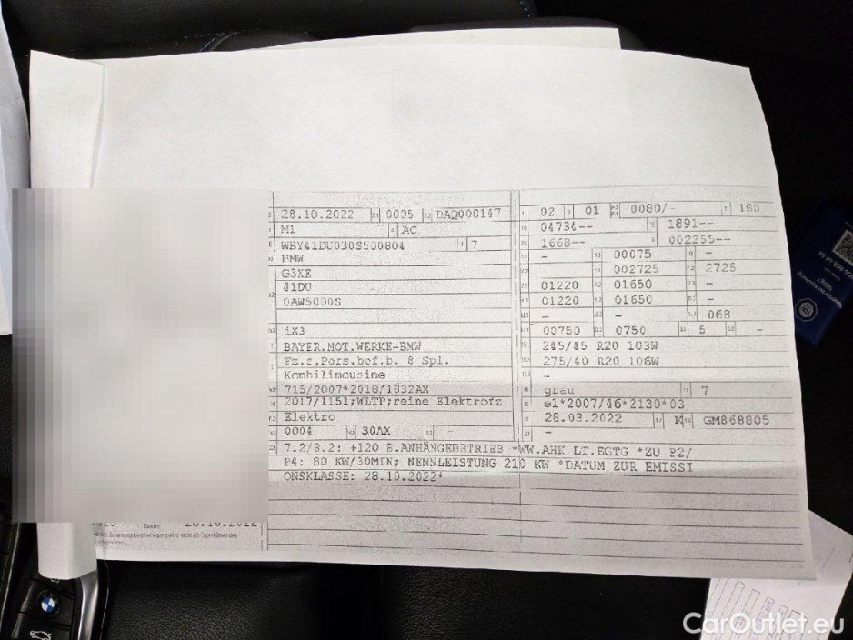 28.10.2022 0005 DAQ000147
M1 AC
WBY41DU030S500804 7
BMW
G3KE
41DU
0AW5000S
iX3
BAYER.MOT.WERKE-BMW
Fz.z.Pers.bef.b. 8 Spl.
Kombilimousine
715/2007*2018/1832AX
2017/1151;WLTP;reine Elektrofz
Elektro
0004 30AX -
02 01 0080/- 180
04734-- 1891--
1668-- 002255--
- 00075 -
002725 2725
01220 01650 -
01220 01650 -
- - 068
00750 0750 5 -
245/45 R20 103W
275/40 R20 106W
-
grau 7
e1*2007/46*2130*03
28.03.2022 K GM868805
-
7.2/8.2: +120 B.ANHÄNGEBETRIEB *WW.AHK LT.EGTG *ZU P2/
P4: 80 KW/30MIN; NENNLEISTUNG 210 KW *DATUM ZUR EMISSI
ONSKLASSE: 28.10.2022*
Datum: 28.10.2022
CarOutlet.eu